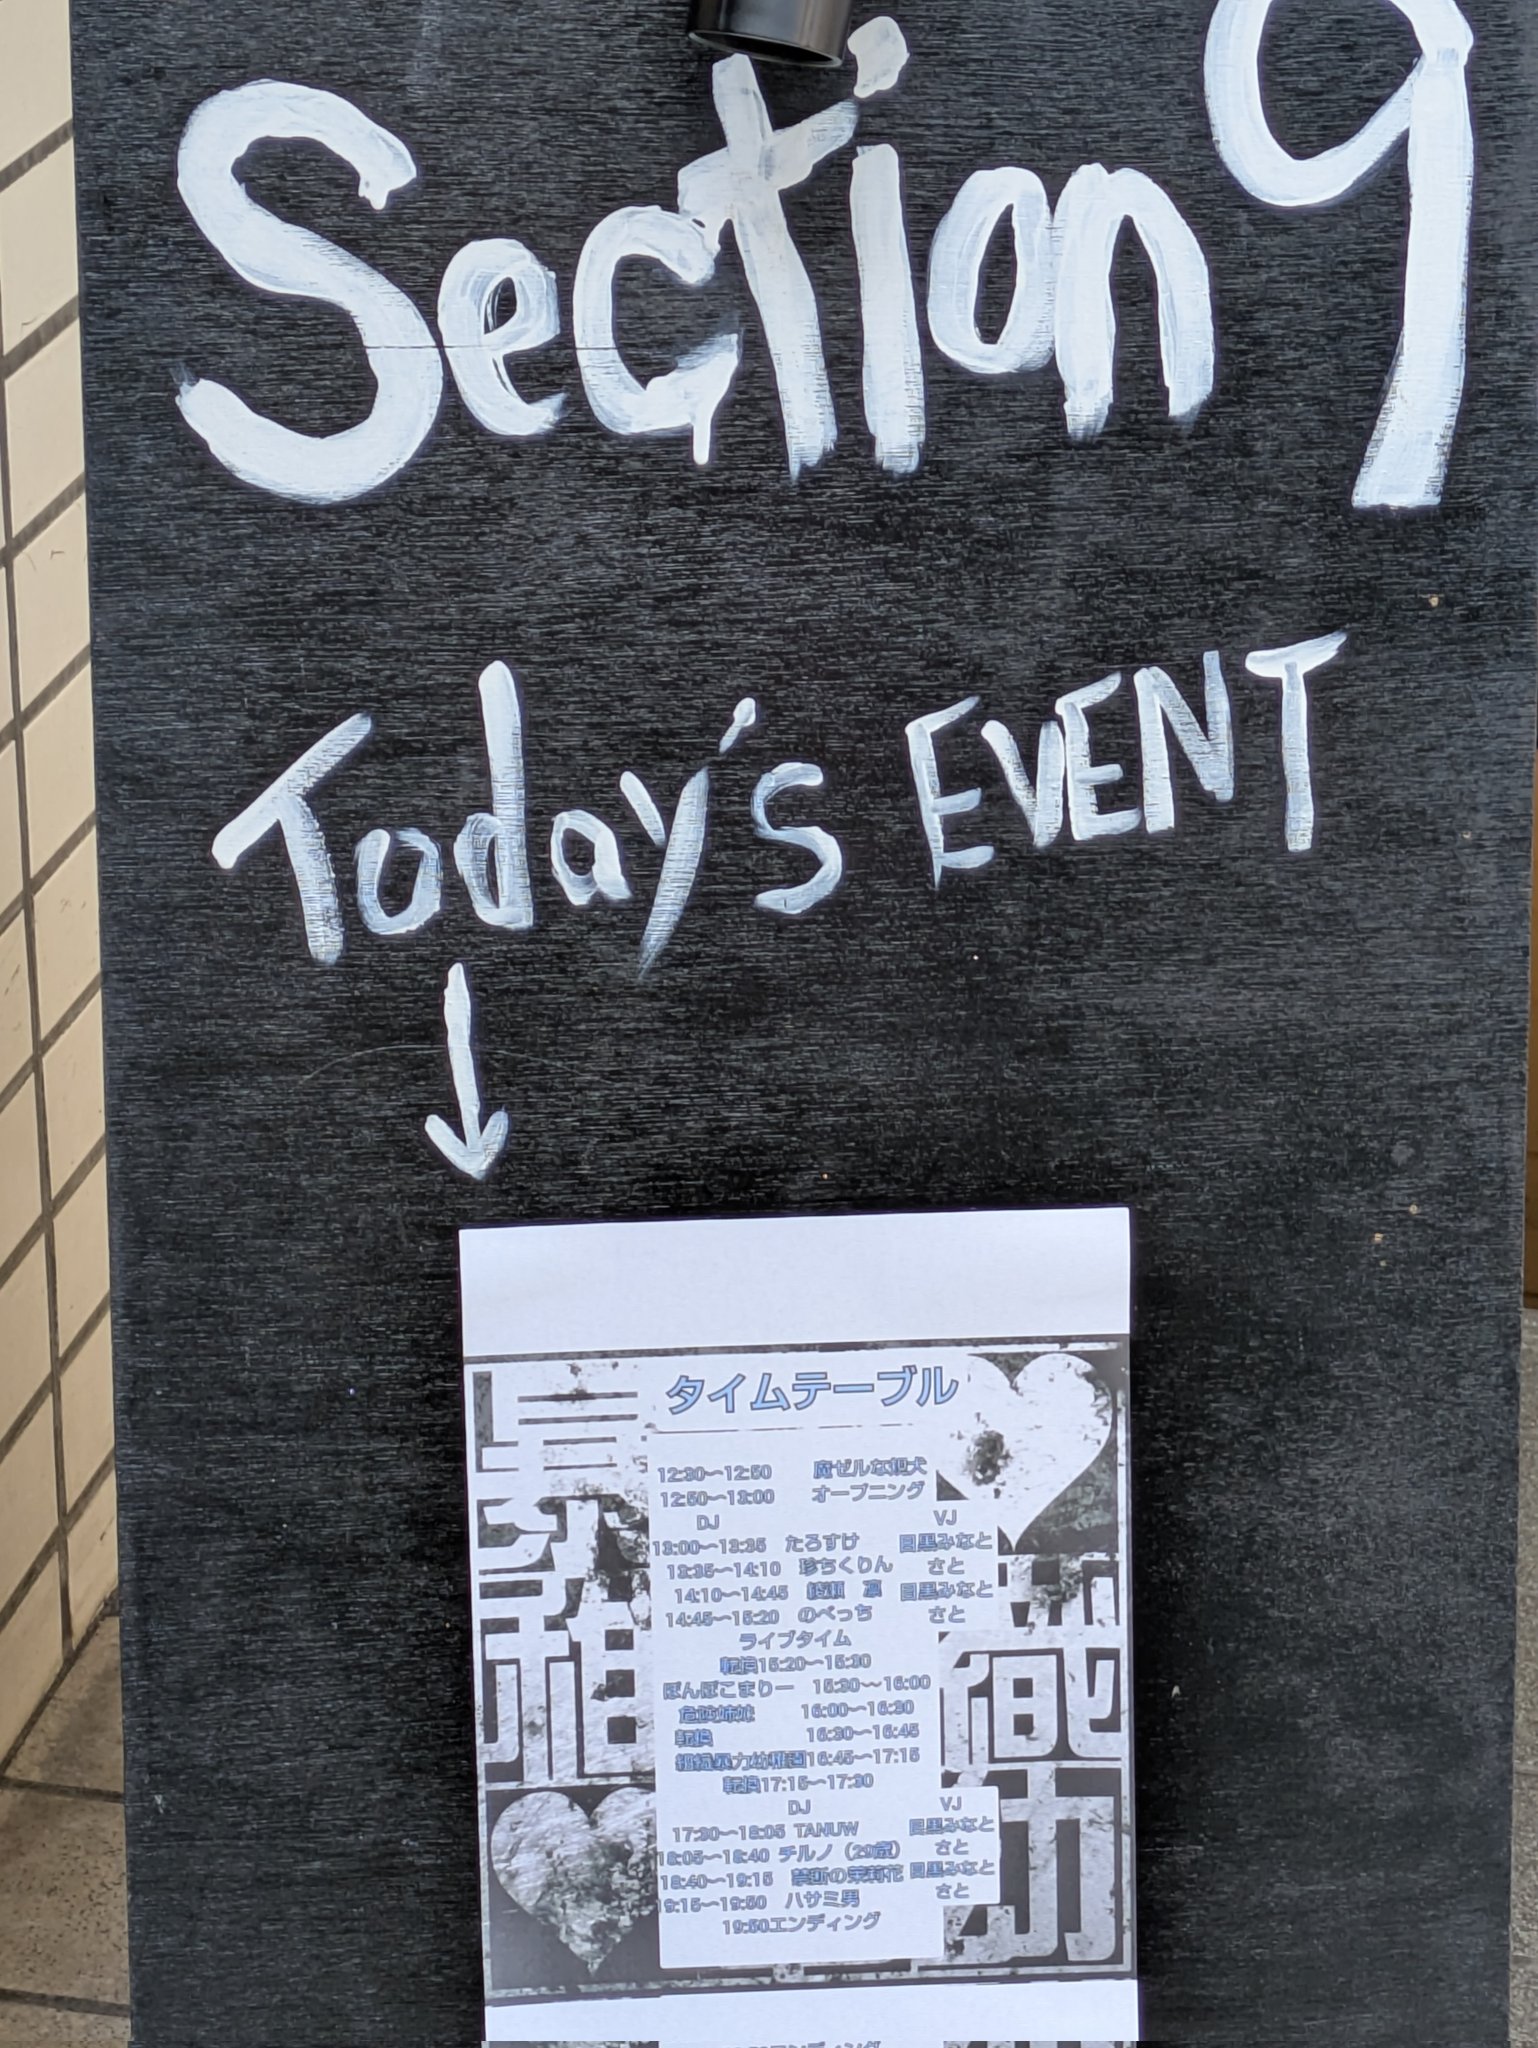 Section 9
Today's EVENT
タイムテーブル
12:30〜12:50 魔ゼルな規犬
12:50〜13:00 オープニング
DJ VJ
13:00〜13:35 たろすけ 目黒みなと
13:35〜14:10 珍ちくりん さと
14:10〜14:45 綾瀬 凛 目黒みなと
14:45〜15:20 のべっち さと
ライブタイム
転換15:20〜15:30
ぽんぽこまりー 15:30〜16:00
危険姉妹 16:00〜16:30
転換 16:30〜16:45
超絶暴力幼稚園16:45〜17:15
転換17:15〜17:30
DJ VJ
17:30〜18:05 TANUW 目黒みなと
18:05〜18:40 チルノ（29歳） さと
18:40〜19:15 禁断の茉莉花 目黒みなと
19:15〜19:50 ハサミ男 さと
19:50エンディング